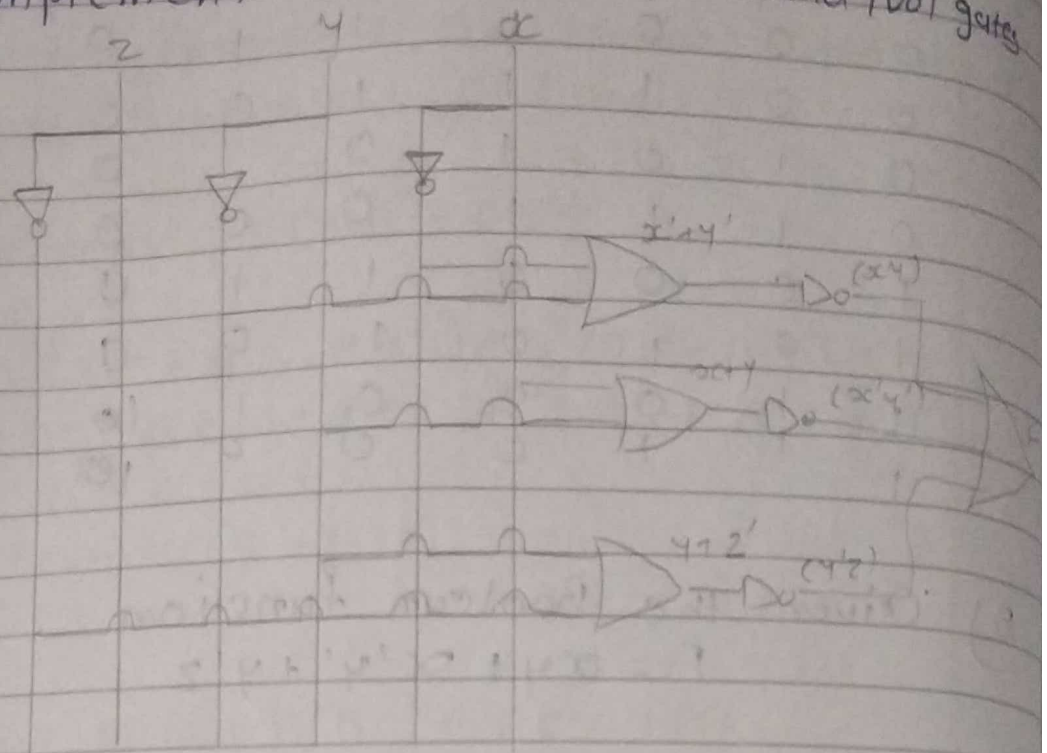 gates
z y x
x'+y'
(xy)
x+y
(x'y'
y+z'
(y'z)